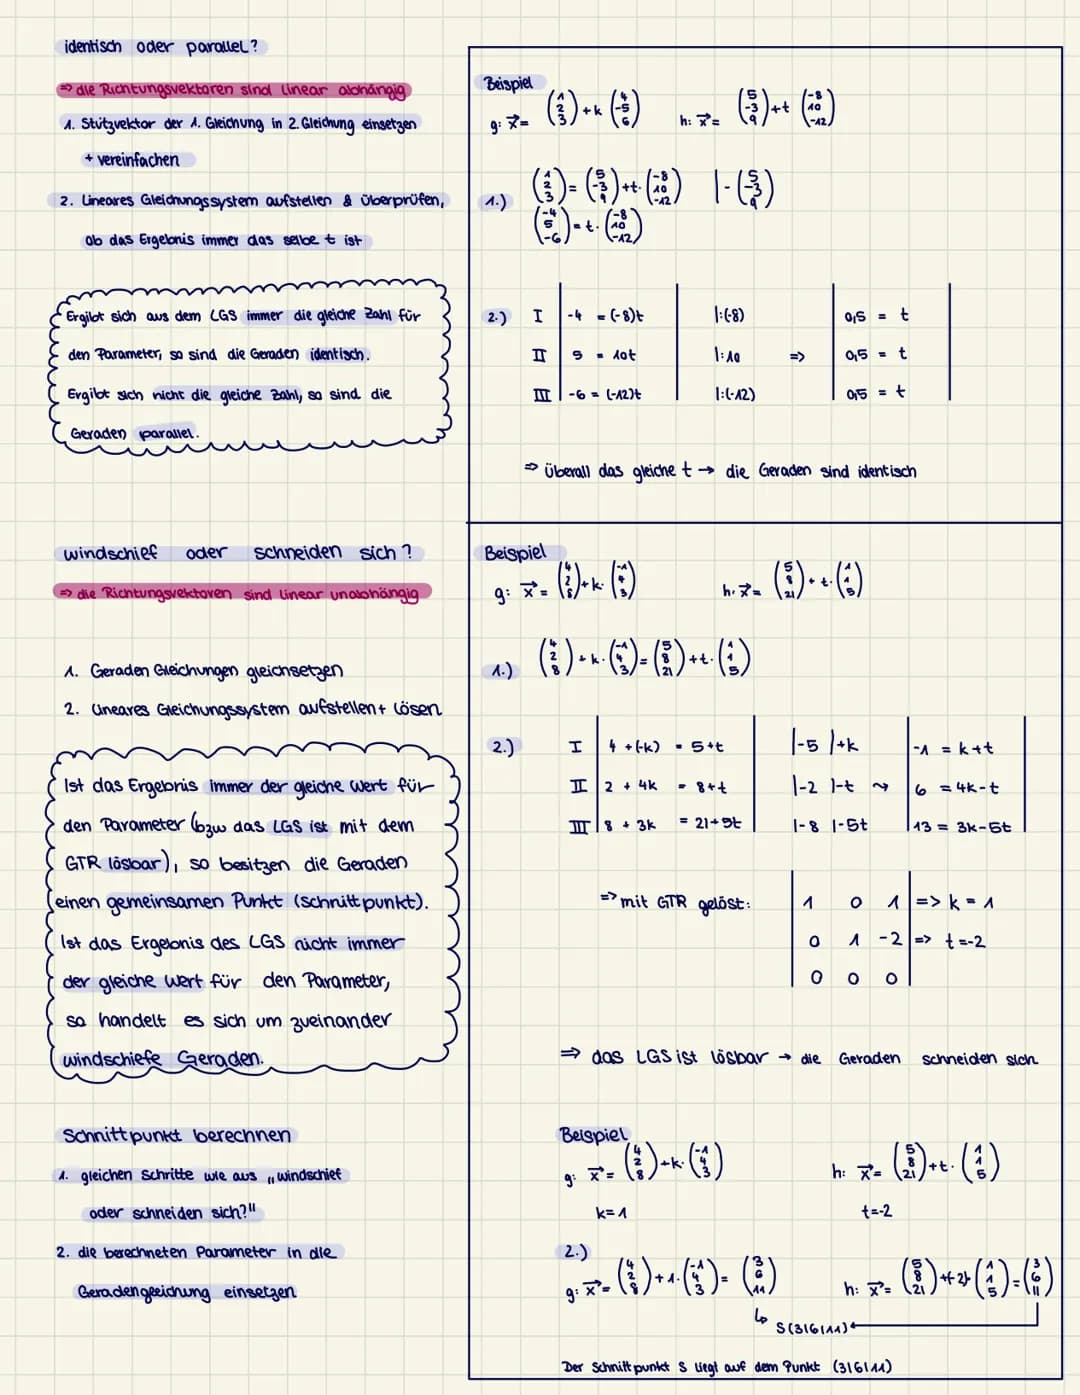 identisch oder parallel?
=> die Richtungsvektoren sind linear abhängig
1. Stützvektor der 1. Gleichung in 2. Gleichung einsetzen
+ vereinfachen
2. Lineares Gleichungssystem aufstellen & überprüfen,
ob das Ergebnis immer das selbe t ist
Ergibt sich aus dem LGS immer die gleiche Zahl für
den Parameter, so sind die Geraden identisch.
Ergibt sich nicht die gleiche Zahl, so sind die
Geraden parallel.
Beispiel
g: x⃗ = (1 2 3) + k (4 -5 6) h: x⃗ = (5 -3 9) + t (-8 10 -12)
1.) (1 2 3) = (5 -3 9) + t · (-8 10 -12) | - (5 -3 9)
(-4 5 -6) = t · (-8 10 -12)
2.) I | -4 = (-8)t | |:(-8) | 0,5 = t |
II | 5 = 10t | |:10 => | 0,5 = t |
III | -6 = (-12)t | |:(-12) | 0,5 = t |
=> überall das gleiche t → die Geraden sind identisch
windschief oder schneiden sich?
=> die Richtungsvektoren sind linear unabhängig
1. Geraden Gleichungen gleichsetzen
2. Lineares Gleichungssystem aufstellen + lösen
Ist das Ergebnis immer der gleiche Wert für
den Parameter (bzw das LGS ist mit dem
GTR lösbar), so besitzen die Geraden
einen gemeinsamen Punkt (Schnittpunkt).
Ist das Ergebnis des LGS nicht immer
der gleiche Wert für den Parameter,
so handelt es sich um zueinander
windschiefe Geraden.
Beispiel
g: x⃗ = (4 2 8) + k · (-1 4 3) h: x⃗ = (5 8 21) + t · (1 1 5)
1.) (4 2 8) + k · (-1 4 3) = (5 8 21) + t · (1 1 5)
2.) I | 4 + (-k) = 5+t | |-5 |+k | -1 = k+t |
II | 2 + 4k = 8+t | |-2 |-t ⇝ | 6 = 4k-t |
III | 8 + 3k = 21+5t | |-8 |-5t | 13 = 3k-5t |
=> mit GTR gelöst: | 1 0 1 | => k = 1
| 0 1 -2 | => t =-2
| 0 0 0 |
=> das LGS ist lösbar → die Geraden schneiden sich
Schnittpunkt berechnen
1. gleichen Schritte wie aus „windschief
oder schneiden sich?"
2. die berechneten Parameter in die
Geradengleichung einsetzen
Beispiel
g: x⃗ = (4 2 8) + k · (-1 4 3) h: x⃗ = (5 8 21) + t · (1 1 5)
k=1 t=-2
2.)
g: x⃗ = (4 2 8) + 1 · (-1 4 3) = (3 6 11) h: x⃗ = (5 8 21) + (-2) · (1 1 5) = (3 6 11)
↳ S(3|6|11) ←
Der Schnittpunkt S liegt auf dem Punkt (3|6|11)